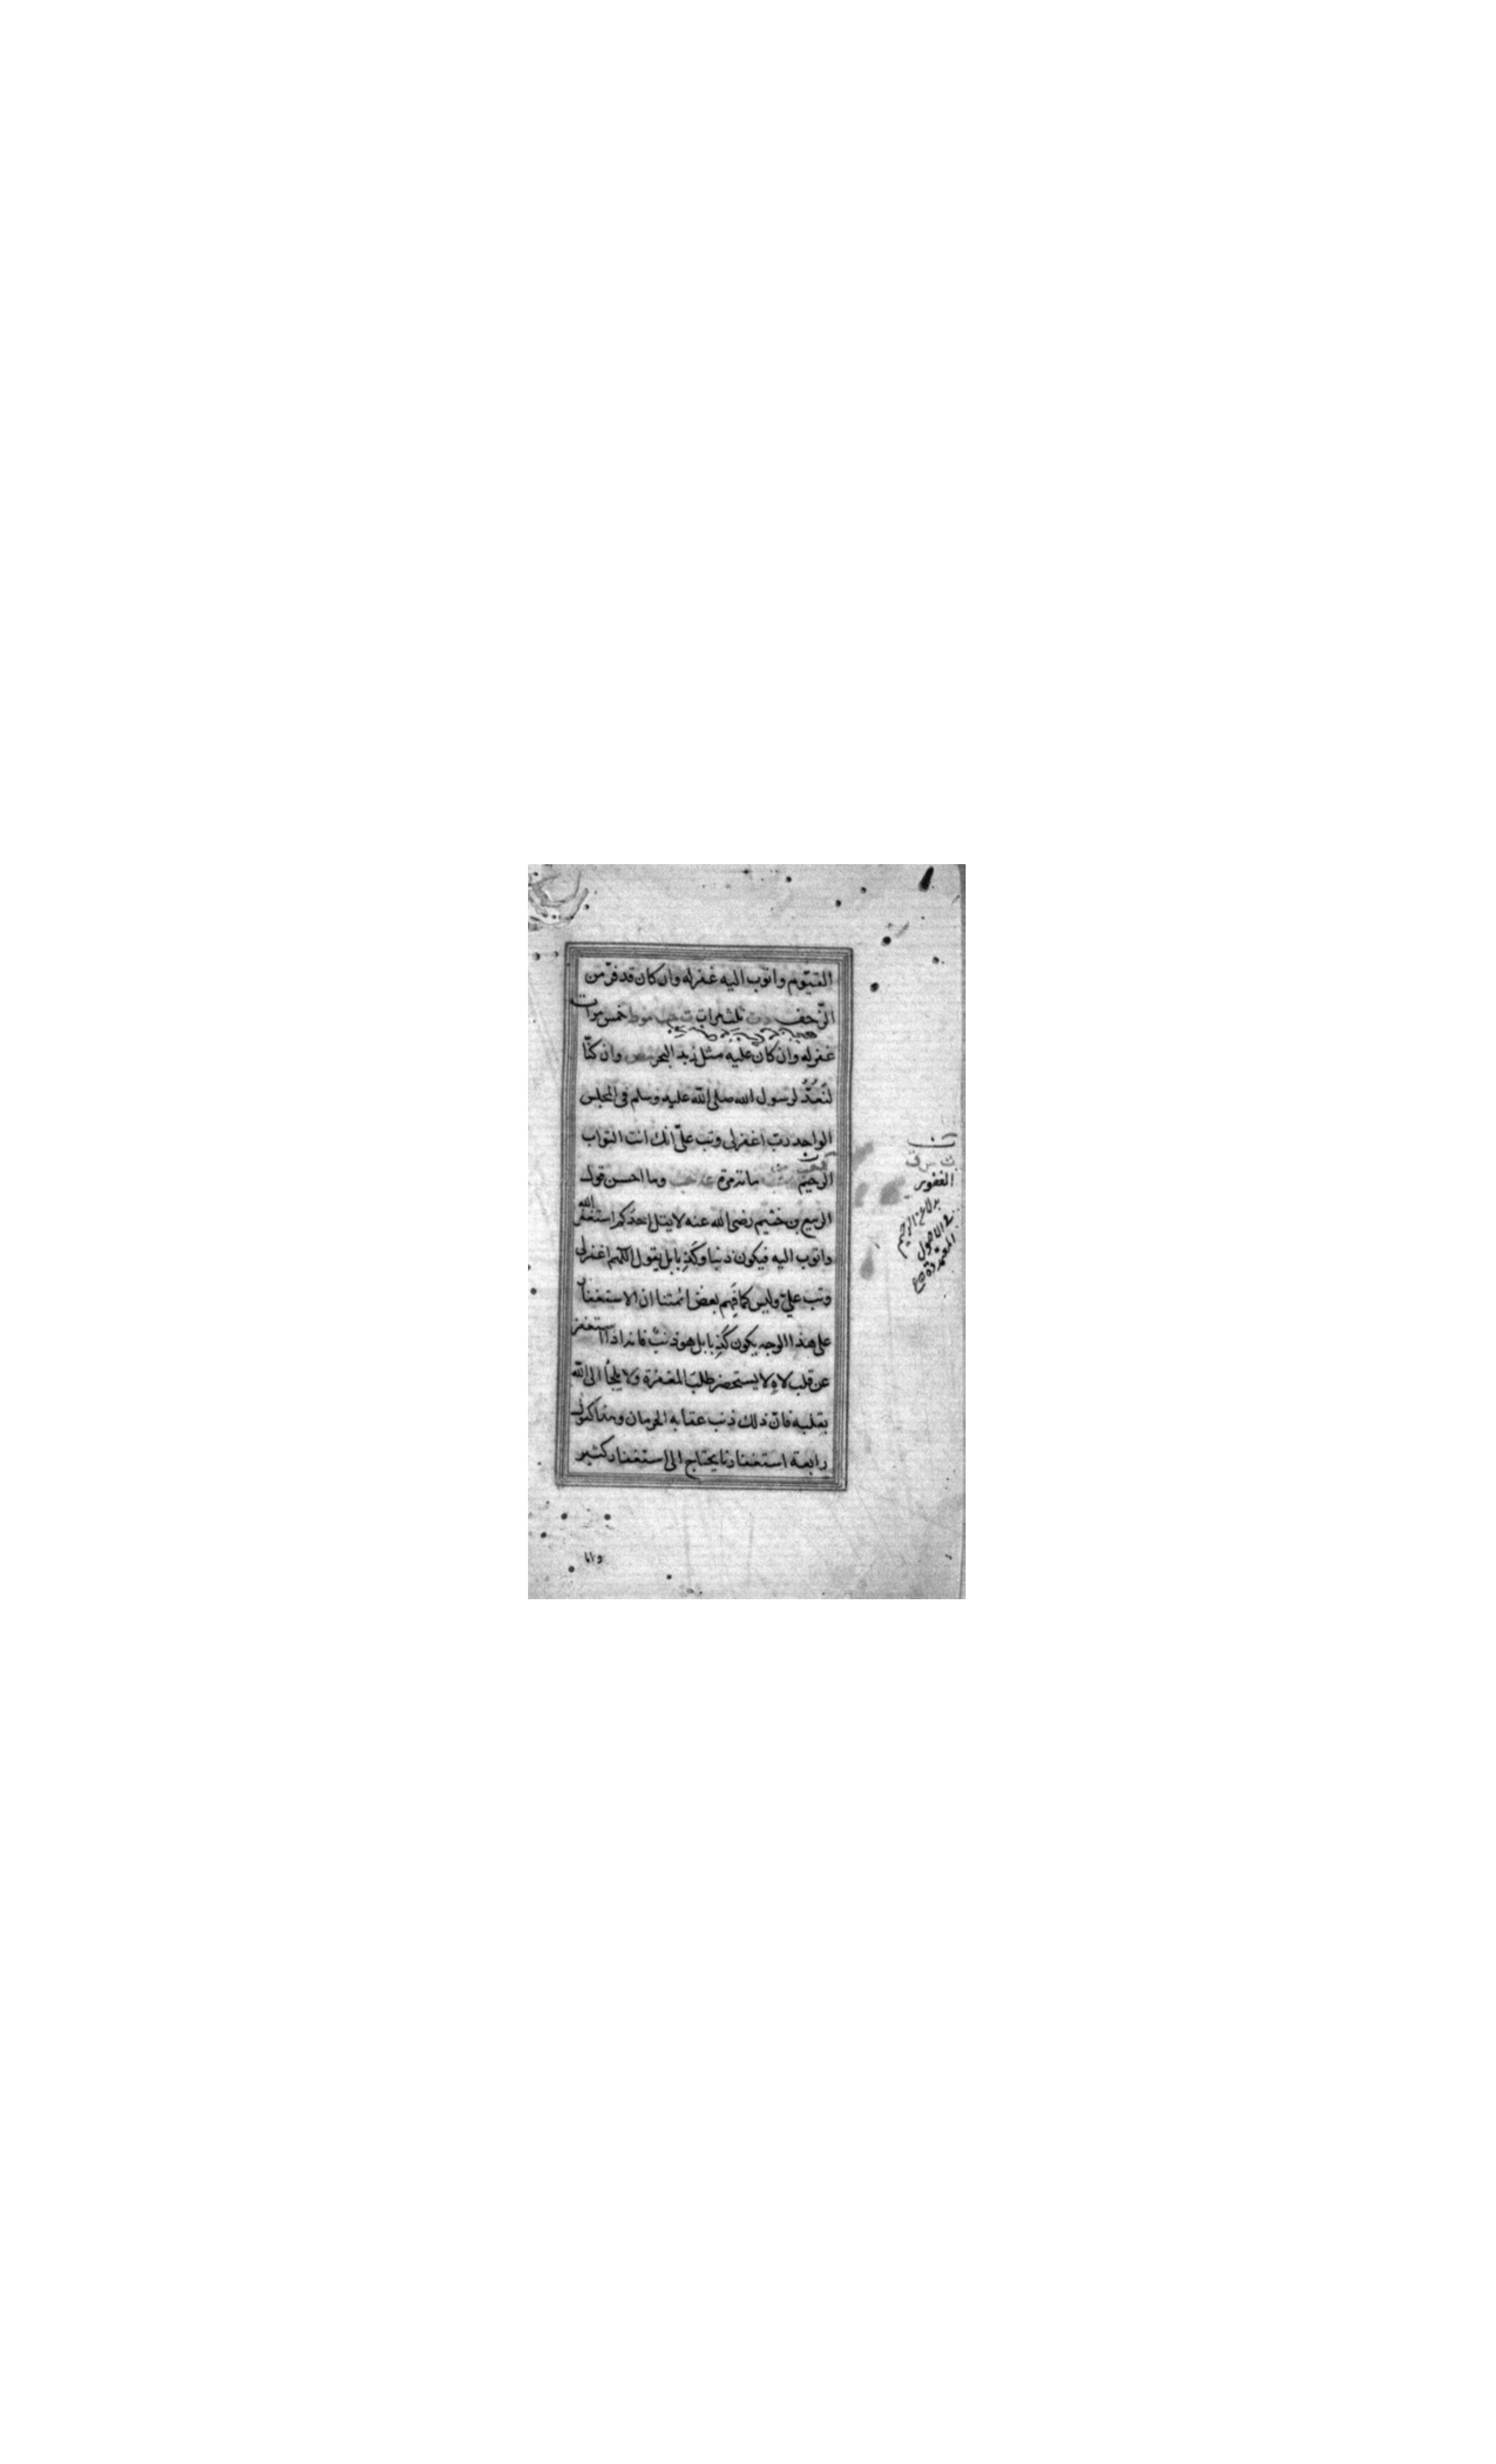 القيّوم واتوب اليه غفرله وان كان قد فرّ من
الزّحف دت ثلث مرات ت حب موط خمس مرات
غفرله وان كان عليه مثل زبد البحر مص وان كنّا
لنَعُدُّ لرسول الله صلى الله عليه وسلم فى المجلس
الواحد ربّ اغفرلى وتب علىّ انك انت التواب
الرحيم مائة مرة عه حب وما احسن قول
الربيع بن خثيم رضى الله عنه لا يقل احدكم استغفر الله
واتوب اليه فيكون ذنبا وكذبا بل يقول اللّهم اغفرلى
وتب علىّ وليس كما فهم بعض ائمتنا ان الاستغفار
على هذا الوجه يكون كَذِبا بل هو ذنبٌ فانه اذا استغفر
عن قلب لاهٍ لا يستحضر طلبَ المغفرة ولا يلجأ الى الله
بقلبه فانّ ذلك ذنب عقابه الحرمان وهذا كقول
رابعة استغفارنا يحتاج الى استغفار كثير
واما
الغفور
بدل الرحيم
فى الاصول
المعتمدة